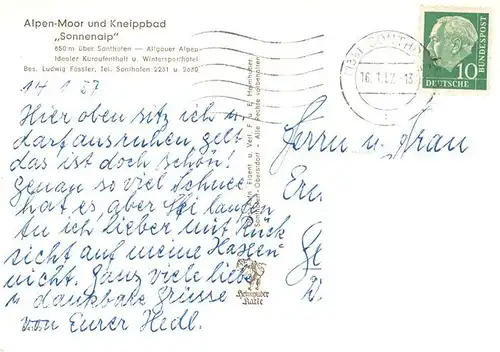 Alpen-Moor und Kneippbad
„Sonnenalp"
850 m über Sonthofen — Allgäuer Alpen
Idealer Kuraufenthalt u. Wintersporthotel
Bes. Ludwig Fässler, Tel. Sonthofen 2231 u. 2680
14 1 57
Hier oben sitz ich u.
darf ausruhen, gelt
das ist doch schön!
Genau so viel Schnee
hat es, aber Ski laufen
tu ich lieber mit Rück
sicht auf meine Haxen
nicht. Ganz viele liebe
u dankbare Grüsse
von Eurer Hedl.
Eigent. u. Verl. F. u. E. Heimhuber
Sonthofen-Oberstdorf - Alle Rechte vorbehalten
Heimhuber
Karte
SONTHOFEN
16. 1. 57. - 13
10
DEUTSCHE
BUNDESPOST
Herrn u. Frau
Ern